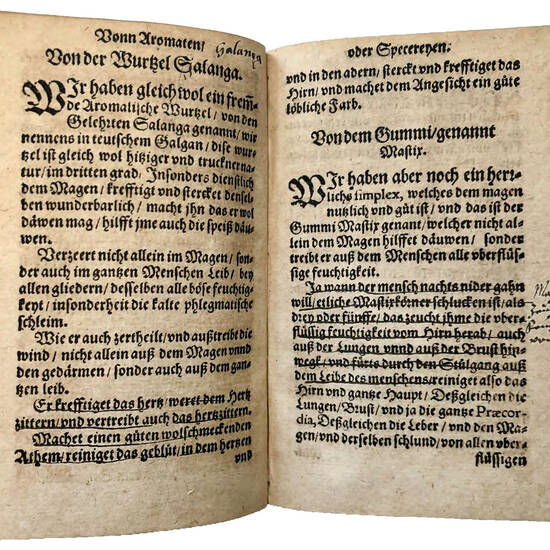 Vonn Aromaten/
Galanga
Von der Wurtzel Galanga.
WJr haben gleich wol ein frem̃-
de Aromatische Wurtzel/von den
Gelehrten Galanga genannt/wir
nennens in teutschem Galgan/dise wur-
tzel ist gleich wol hitziger vnd truckner na-
tur/im dritten grad/Jnsonders dienstlich
dem Magen/krefftigt vnd stercket densel-
ben wunderbarlich/macht jhn das er wol
däwen mag/hilfft jme auch die speiß däu-
wen.
Verzeert nicht allein im Magen/son-
der auch im gantzen Menschen Leib/bey
allen glidern/desselben alle böse feuchtig-
keyt/insonderheit die kalte phlegmatische
schleim.
Wie er auch zertheilt/vnd außtreibt die
wind/nicht allein auß dem Magen vnnd
den gedärmen/sonder auch auß dem gan-
tzen leib.
Er krefftiget das hertz/weret dem Hertz
zittern/vnd vertreibt auch das hertzzittern.
Machet einen gůten wolschmeckenden
Athem/reiniget das geblüt/in dem hertzen
vnd
oder Specereyen.
vnd in den adern/sterckt vnd krefftiget das
Hirn/vnd machet dem Angesicht ein gůte
löbliche Farb.
Von dem Gummi/genannt
Mastix.
WJr haben aber noch ein herr-
lichs simplex, welches dem magen
nutzlich vnd gůt ist/vnd das ist der
Gummi Mastix genant/welcher nicht al-
lein dem Magen hilffet däuwen/sonder
treibet er auß dem Menschen alle vberflüs-
sige feuchtigkeit.
Ja wann der mensch nachts nider gahn
will/etliche Mastixkörner schlucken ist/als
drey oder fünffe/das zeucht jhme die vber-
flüssig feuchtigkeit vom Hirn herab/auch
auß der Lungen vnnd auß der Brust hin-
wegk/vnd fürts durch den Stůlgang auß
dem Leibe des menschens/reiniget also das
Hirn vnd gantz Haupt/Deßgleichen die
Lungen/Brust/vnd ja die gantze Præcor-
dia, Deßgleichen die Leber/vnd den Ma-
gen/vnd derselben schlund/von allen vber-
flüssigen